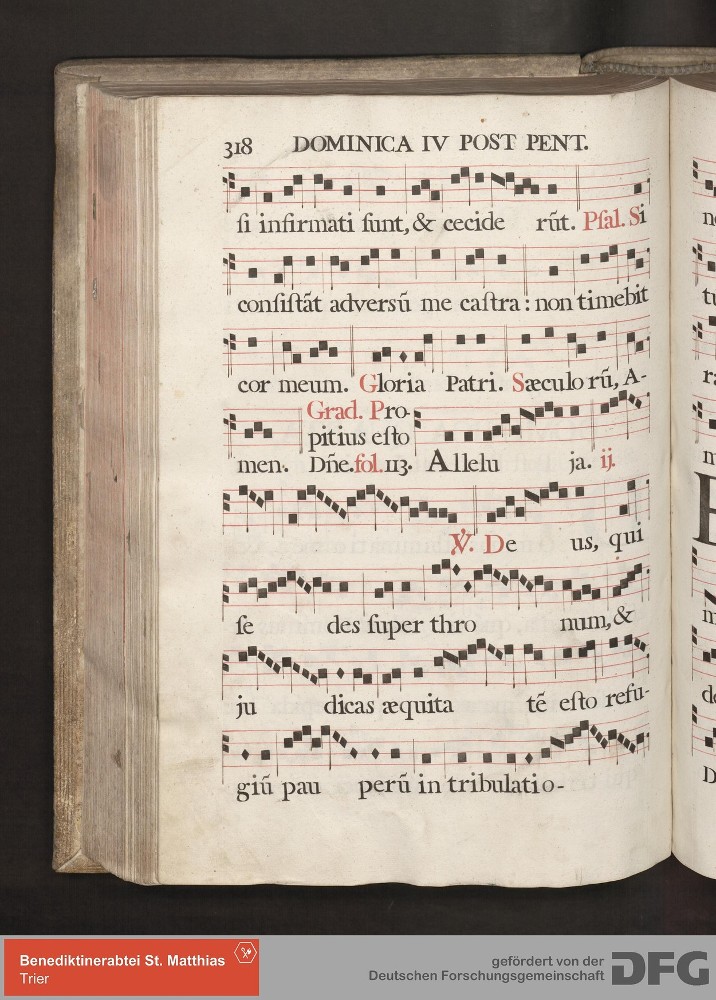 318 DOMINICA IV POST PENT.
ſi infirmati ſunt, & cecide rũt. Pſal. Si
conſiſtãt adversũ me caſtra : non timebit
cor meum. Gloria Patri. Sæculo rũ, A-
Grad. Pro-
pitius eſto
men. Dñe. fol. 113. Allelu ja. ij.
℣. De us, qui
ſe des ſuper thro num, &
ju dicas æquita tẽ eſto refu-
giũ pau perũ in tribulatio-
Benediktinerabtei St. Matthias
Trier
gefördert von der
Deutschen Forschungsgemeinschaft DFG